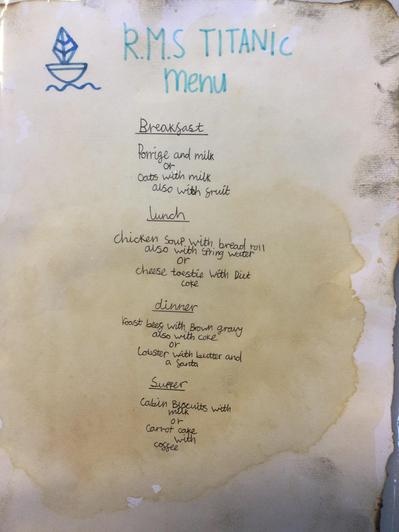 R.M.S TITANIC
Menu
Breakfast
Porrige and milk
or
Oats with milk
also with fruit
lunch
Chicken Soup with bread roll
also with Spring water
or
cheese toastie with Diet
coke
dinner
Roast beef with Brown gravy
also with coke
or
Lobster with butter and
a fanta
Supper
Cabin Biscuits with
milk
or
Carrot cake
with
coffee